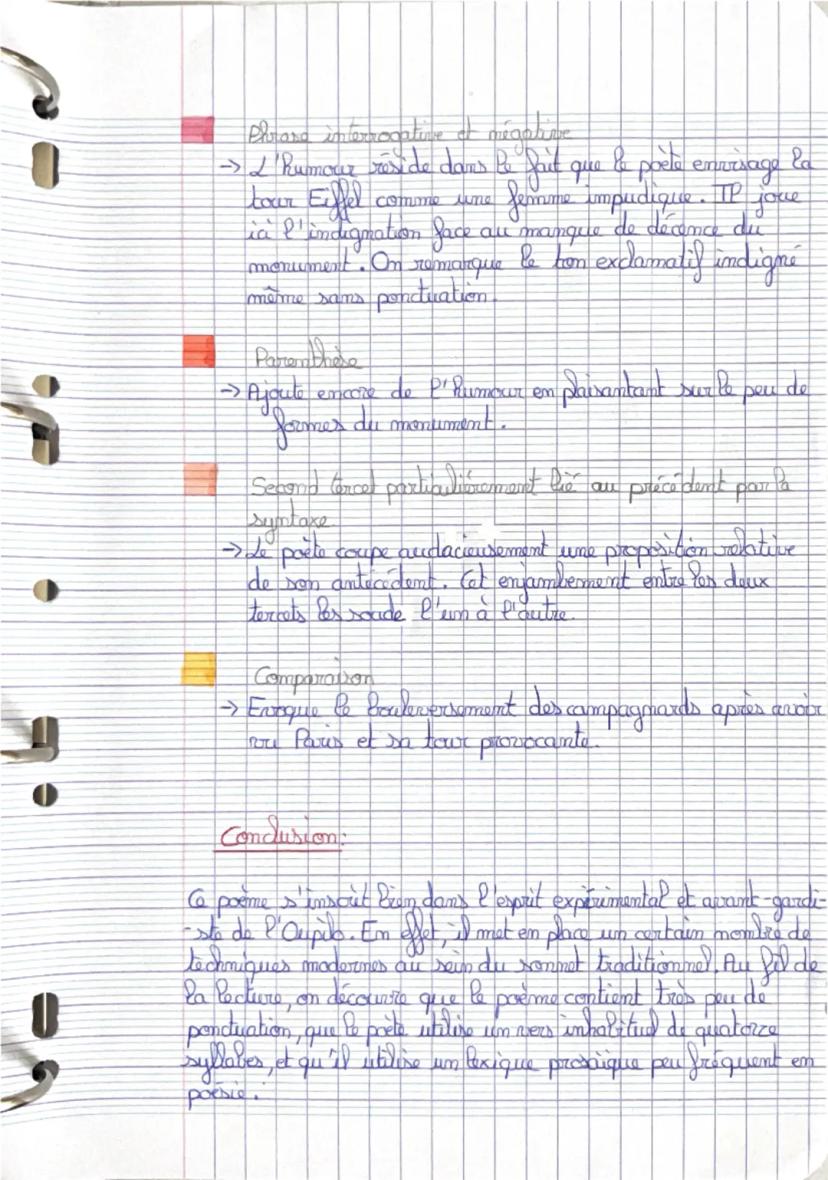 Phrase interrogative et négative
→ L'humour réside dans le fait que le poète envisage la
tour Eiffel comme une femme impudique. Il joue
ici l'indignation face au manque de décence du
monument. On remarque le ton exclamatif indigné
même sans ponctuation.
Parenthèse
→ Ajoute encore de l'humour en plaisantant sur le peu de
formes du monument.
Second tercet particulièrement lié au précédent par la
syntaxe
→ Le poète coupe audacieusement une proposition relative
de son antécédent. Cet enjambement entre les deux
tercets les soude l'un à l'autre.
Comparaison
→ Evoque le bouleversement des campagnards après avoir
vu Paris et sa tour provocante.
Conclusion:
Ce poème s'inscrit bien dans l'esprit expérimental et avant-gardi-
-ste de l'Oupilo. En effet, il met en place un certain nombre de
techniques modernes au sein du sonnet traditionnel. Au fil de
la lecture, on découvre que le poème contient très peu de
ponctuation, que le poète utilise un vers inhabituel de quatorze
syllabes, et qu'il utilise un lexique prosaïque peu fréquent en
poésie.